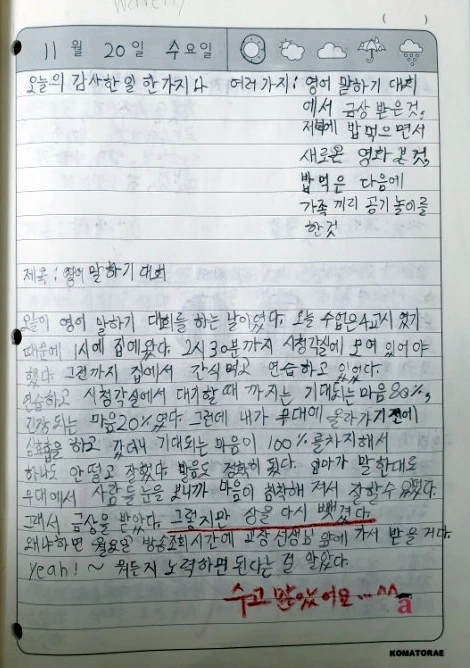 11월 20일 수요일
오늘의 감사한 일 한가지나 여러가지: 영어 말하기 대회
에서 금상 받은것,
저녁에 밥 먹으면서
새로운 영화 본 것,
밥 먹은 다음에
가족끼리 공기놀이를
한것
제목: 영어 말하기 대회
오늘이 영어 말하기 대회를 하는 날이었다. 오늘 수업은 4교시 였기
때문에 1시에 집에왔다. 2시 30분까지 시청각실에 모여 있어야
했다. 그전까지 집에서 간식 먹고 연습하고 있었다.
연습하고 시청각실에서 대기할 때 까지는 기대되는 마음 80%,
긴장되는 마음 20%였다. 그런데 내가 무대에 올라가기 전에
심호흡을 하고 갔더니 기대되는 마음이 100%를 차지해서
하나도 안떨고 잘했다. 발음도 정확히 됬다. 엄마가 말한대로
무대에서 사람들 눈을 보니까 마음이 침착해 져서 잘할수 있었다.
그래서 금상을 받았다. 그렇지만 상을 다시 뺐겼다.
왜냐하면 월요일 방송조회시간에 교장선생님 앞에 가서 받을거다.
Yeah! ~ 뭐든지 노력하면 된다는 걸 알았다.
수고 많았어요...^^
a
KOMATORAE